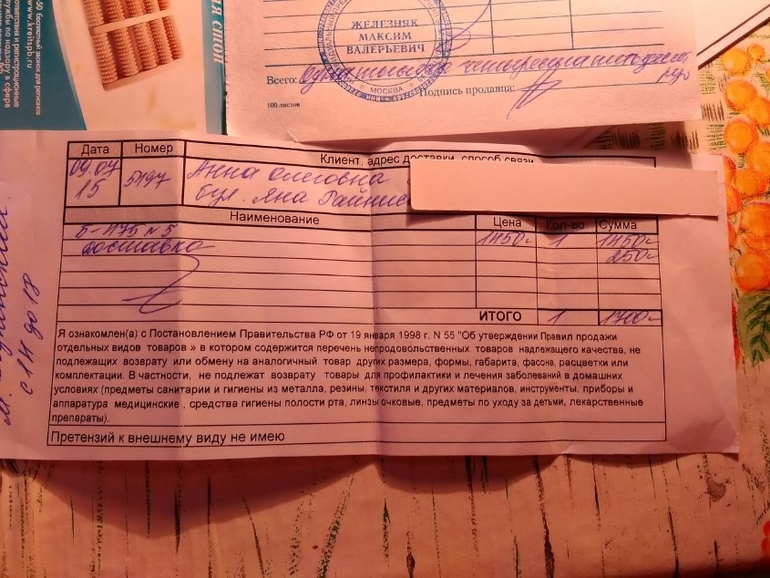 ЖЕЛЕЗНЯК
МАКСИМ
ВАЛЕРЬЕВИЧ
МОСКВА
Всего:
Подпись продавца:
100 листов
www.kreitspb.ru
Дата Номер Клиент, адрес доставки, способ связи
09.07 15 5197 Анна Олеговна
бул. Яна Райниса
Наименование Цена Кол-во Сумма
Б-475 N5 1450 1 1450
доставка 250
ИТОГО 1 1700
Я ознакомлен(а) с Постановлением Правительства РФ от 19 января 1998 г. N 55 "Об утверждении Правил продажи
отдельных видов товаров » в котором содержится перечень непродовольственных товаров надлежащего качества, не
подлежащих возврату или обмену на аналогичный товар других размера, формы, габарита, фасона, расцветки или
комплектации. В частности, не подлежат возврату товары для профилактики и лечения заболеваний в домашних
условиях (предметы санитарии и гигиены из металла, резины, текстиля и других материалов, инструменты, приборы и
аппаратура медицинские, средства гигиены полости рта, линзы очковые, предметы по уходу за детьми, лекарственные
препараты).
Претензий к внешнему виду не имею
с 14 до 18